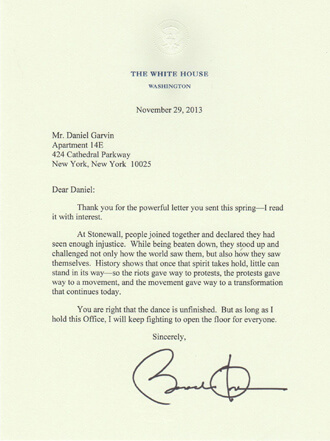 THE WHITE HOUSE
WASHINGTON
November 29, 2013
Mr. Daniel Garvin
Apartment 14E
424 Cathedral Parkway
New York, New York 10025
Dear Daniel:
Thank you for the powerful letter you sent this spring—I
read it with interest.
At Stonewall, people joined together and declared they had
seen enough injustice. While being beaten down, they stood up and
challenged not only how the world saw them, but also how they saw
themselves. History shows that once that spirit takes hold, little can
stand in its way—so the riots gave way to protests, the protests gave
way to a movement, and the movement gave way to a transformation
that continues today.
You are right that the dance is unfinished. But as long as I
hold this Office, I will keep fighting to open the floor for everyone.
Sincerely,